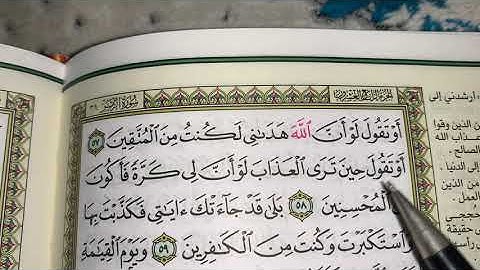 سورة الزمر ٣٩
الجزء الرابع والعشرون
أَوْ تَقُولَ لَوْ أَنَّ ٱللَّهَ هَدَىٰنِى لَكُنتُ مِنَ ٱلْمُتَّقِينَ ٥٧
أَوْ تَقُولَ حِينَ تَرَى ٱلْعَذَابَ لَوْ أَنَّ لِى كَرَّةً فَأَكُونَ
ٱلْمُحْسِنِينَ ٥٨ بَلَىٰ قَدْ جَآءَتْكَ ءَايَٰتِى فَكَذَّبْتَ بِهَا
وَٱسْتَكْبَرْتَ وَكُنتَ مِنَ ٱلْكَٰفِرِينَ ٥٩ وَيَوْمَ ٱلْقِيَٰمَةِ
أرشدني إلى
من الذين وقوا
عذاب الله
الصالح.
إلى الدنيا
من الذين
العمل.
حججي
حقيقة